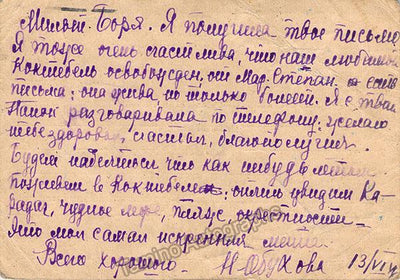 Милый Боря. Я получила твое письмо
Я тоже очень счастлива, что наш любимый
Коктебель освобожден, от Мар. Степан. есть
письма; она жива, но только болеет. Я с твоей
Мамой разговаривала по телефону; желаю
тебе здоровья, счастья, благополучия.
Будем надеяться что как нибудь летом
поживем в Коктебеле; опять увидим Ка-
радаг, чудное море, пляж, окрестности.
Это моя самая искренняя мечта
Всего хорошего. Н. Обухова 13/VI
Tamino Autographs